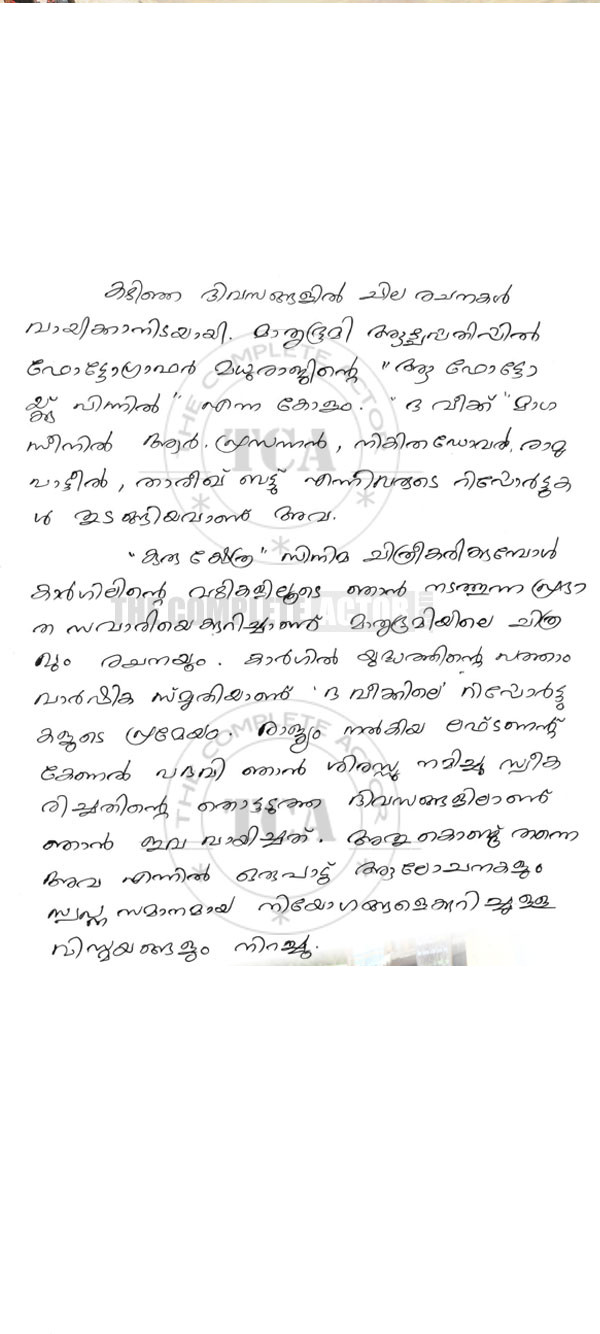 കഴിഞ്ഞ ദിവസങ്ങളിൽ ചില രചനകൾ
വായിക്കാനിടയായി. മാതൃഭൂമി ആഴ്ചപ്പതിപ്പിൽ
ഫോട്ടോഗ്രാഫർ മധുരാജിന്റെ "ആ ഫോട്ടോ
യ്ക്കു പിന്നിൽ" എന്ന കോളം. "ദ വീക്ക്" മാഗ
സീനിൽ ആർ. പ്രസന്നൻ, നികിത ഡോവൽ, രാമു
പാട്ടീൽ, താരീഖ് ബട്ട് എന്നിവരുടെ റിപ്പോർട്ടുക
ൾ തുടങ്ങിയവാണ് അവ.
"കുരുക്ഷേത്ര" സിനിമ ചിത്രീകരിക്കുമ്പോൾ
കാർഗിലിന്റെ വഴികളിലൂടെ ഞാൻ നടത്തുന്ന പ്രഭാ
ത സവാരിയെക്കുറിച്ചാണ് മാതൃഭൂമിയിലെ ചിത്ര
വും രചനയും. കാർഗിൽ യുദ്ധത്തിന്റെ പത്താം
വാർഷിക സ്മൃതിയാണ് 'ദ വീക്കിലെ' റിപ്പോർട്ടു
കളുടെ പ്രമേയം. രാജ്യം നൽകിയ ലഫ്ടണന്റ്
കേണൽ പദവി ഞാൻ ശിരസ്സു നമിച്ചു സ്വീക
രിച്ചതിന്റെ തൊട്ടടുത്ത ദിവസങ്ങളിലാണ്
ഞാൻ ഇവ വായിച്ചത്. അതു കൊണ്ടു തന്നെ
അവ എന്നിൽ ഒരുപാട്ട് ആലോചനകളും
സ്വപ്ന സമാനമായ നിയോഗങ്ങളെക്കുറിച്ചുള്ള
വിസ്മയങ്ങളും നിറച്ചു.
THE COMPLETE ACTOR
TCA
THE COMPLETE ACTOR
THE COMPLETE ACTOR
TCA